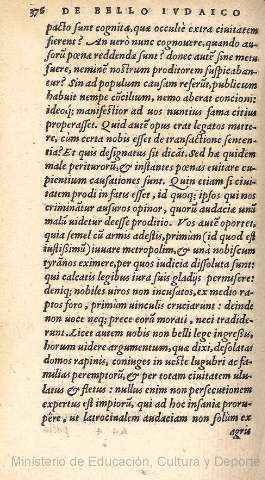 376 DE BELLO IVDAICO
pacto sunt cognita, quæ occultè extra ciuitatem
fierent? An uerò nunc cognouere, quando au-
sorũ pœnæ reddendæ sunt? donec autẽ sine metu
fuere, neminẽ nostrum proditorem suspicaban-
tur? Sin ad populum causam referũt, publicum
habuit nempe cõcilium, nemo aberat concioni:
ideoq; manifestior ad uos nuntius fama citius
properasset. Quid autẽ opus erat legatos mitte-
re, cùm certa nobis esset de transactione senten-
tia? Et quis designatus sit dicãt. Sed hæ quidẽm
male periturorũ, & instantes pœnas euitare cu-
pientium causationes sunt. Quin etiam si ciui-
tatem prodi in fatis esset, id quoq; ipsos qui nos
criminãtur ausuros opinor, quorũ audaciæ unũ
malũ uidetur deesse proditio. Vos autẽ oportet,
quia semel cũ armis adestis, primùm (id quod est
iustissimũ) iuuare metropolim, & unà nobiscum
tyrãnos eximere, per quos iudicia dissoluta sunt:
qui calcatis legibus iura suis gladijs permisere:
deniq; nobiles uiros non incusatos, ex medio ra-
ptos foro, primùm uinculis cruciarunt: deinde
non uoce neq; prece eorũ morati, neci tradide-
runt. Licet autem uobis non belli lege ingressis,
horum uidere argumentum, quæ dixi, desolatas
domos rapinis, coniuges in ueste lugubri ac fa-
milias peremptorũ, & per totam ciuitatem ulu-
latus & fletus: nullus enim non persecutionem
expertus est impiorũ, qui ad hoc insaniæ proru-
pêre, ut latrocinalem audaciam non solùm ex
agris
Ministerio de Educación, Cultura y Deporte